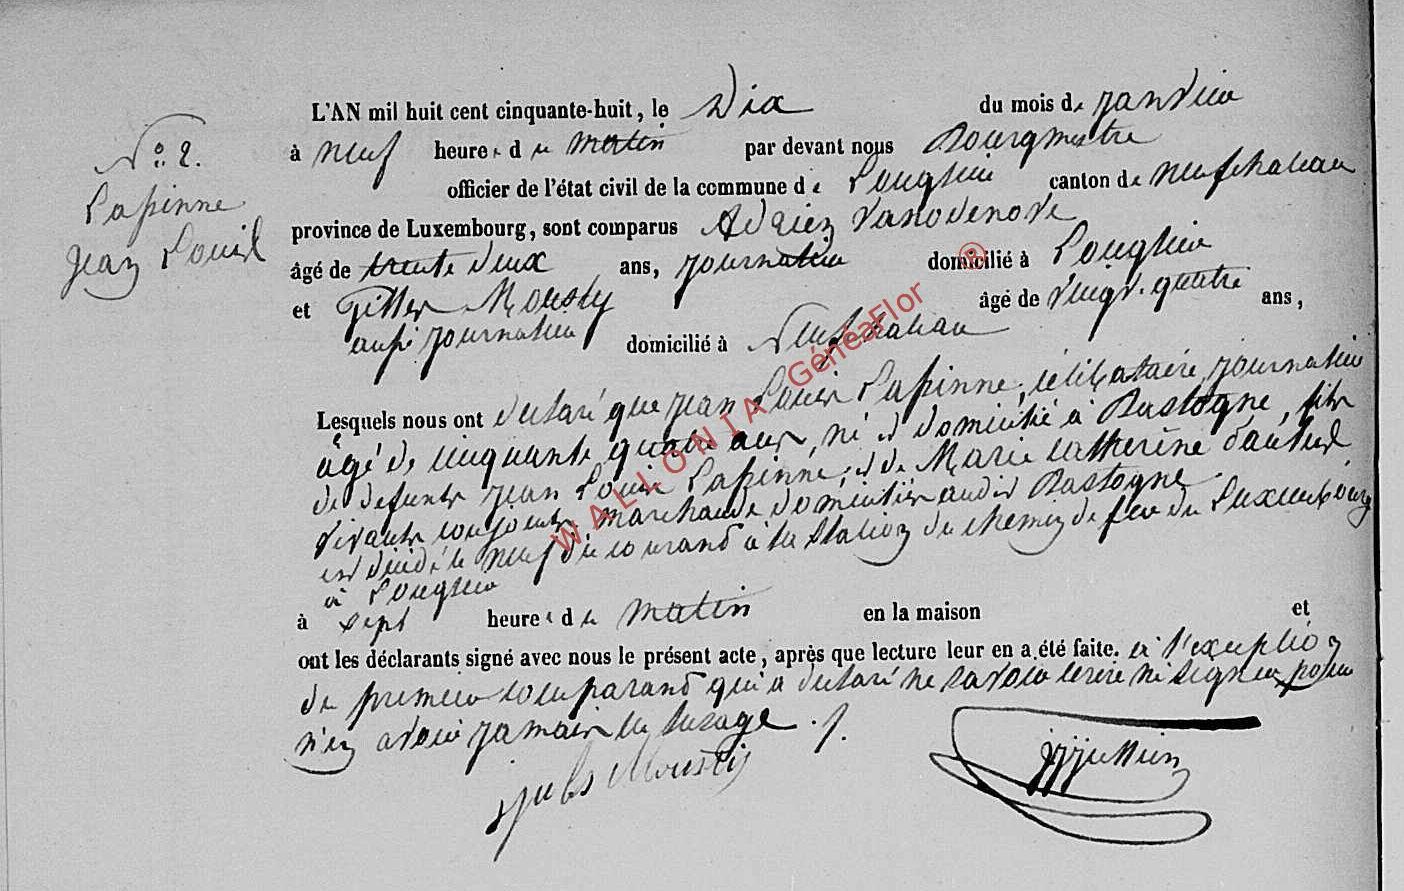 N° 2.
Lapinne
Jean Louis
L'AN mil huit cent cinquante-huit, le Dix du mois de janvier
à neuf heures du matin par devant nous Bourgmestre
officier de l'état civil de la commune de Longlier canton de neufchateau
province de Luxembourg, sont comparus Adrien Vanovenove
âgé de trente deux ans, journalier domicilié à Longlier
et Gilles Mousty âgé de vingt-quatre ans,
aussi journalier domicilié à Neufchateau
Lesquels nous ont declaré que jean Louis Lapinne, célibataire, journalier
âgé de cinquante quatre ans, né et domicilié à Bastogne, fils
de defunts jean Louis Lapinne, et de Marie Catherine
vivants conjoints marchands domiciliés audit Bastogne
est décidé le neuf du courant à la Station du chemin de fer du Luxembourg
à Longlier
à sept heures du matin en la maison et
ont les déclarants signé avec nous le présent acte, après que lecture leur en a été faite. à l'exception
du premier comparant qui a declaré ne savoir écrire ni signer pour
n'en avoir jamais eu lusage
Mousty
WALLONIA GénéaFlor ®